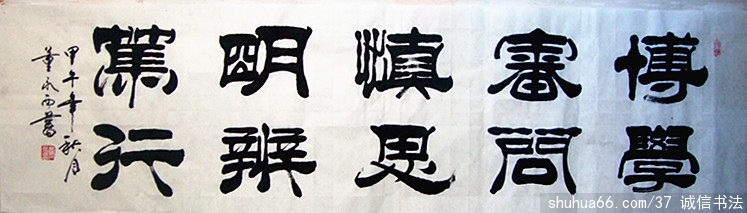 博學
審問
慎思
明辨
篤行
甲午年秋月
董永書
shuhua66.com/37 诚信书法